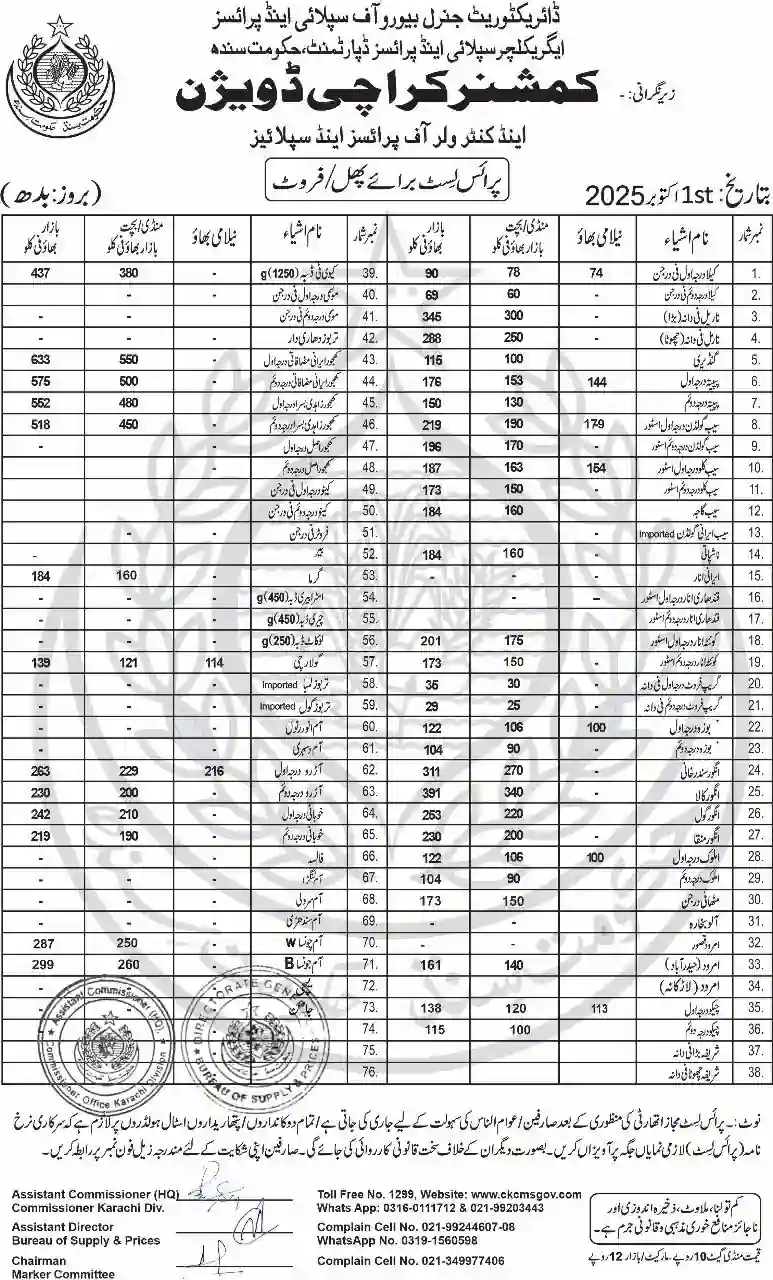 ڈائریکٹوریٹ جنرل بیورو آف سپلائی اینڈ پرائسز
ایگریکلچر سپلائی اینڈ پرائسز ڈپارٹمنٹ، حکومت سندھ
زیرنگرانی:-
کمشنر کراچی ڈویژن
اینڈ کنٹرولر آف پرائسز اینڈ سپلائیز
پرائس لسٹ برائے پھل/فروٹ
تاریخ: 1st اکتوبر 2025
(بروز: بدھ)
نمبر شمار نام اشیاء نیلامی بھاؤ منڈی/بچت بازار بھاؤ فی کلو بازار بھاؤ فی کلو
1. کیلا درجہ اول فی درجن 74 78 90
2. کیلا درجہ دوئم فی درجن - 60 69
3. ناریل فی دانہ (بڑا) - 300 345
4. ناریل فی دانہ (چھوٹا) - 250 288
5. گنڈیری - 100 115
6. پپیتہ درجہ اول 144 153 176
7. پپیتہ درجہ دوئم - 130 150
8. سیب گولڈن درجہ اول اسٹور 179 190 219
9. سیب گولڈن درجہ دوئم اسٹور - 170 196
10. سیب کلو درجہ اول اسٹور 154 163 187
11. سیب کلو درجہ دوئم اسٹور - 150 173
12. سیب گاجہ - 160 184
13. سیب ایرانی گولڈن Imported
14. ناشپاتی - 160 184
15. ایرانی انار - - -
16. قندھاری انار درجہ اول اسٹور - - -
17. قندھاری انار درجہ دوئم اسٹور
18. کوئٹہ انار درجہ اول اسٹور - 175 201
19. کوئٹہ انار درجہ دوئم اسٹور - 150 173
20. گریپ فروٹ درجہ اول فی دانہ - 30 35
21. گریپ فروٹ درجہ دوئم فی دانہ - 25 29
22. بوزہ درجہ اول 100 106 122
23. بوزہ درجہ دوئم - 90 104
24. انگور سندرخانی - 270 311
25. انگور کالا - 340 391
26. انگور گول - 220 253
27. انگور منقا - 200 230
28. املوک درجہ اول 100 106 122
29. املوک درجہ دوئم - 90 104
30. مٹھا فی درجن - 150 173
31. آلو بخارہ
32. امرود قصور - - -
33. امرود (حیدرآباد) - 140 161
34. امرود (لاڑکانہ)
35. چیکو درجہ اول 113 120 138
36. چیکو درجہ دوئم 100 115
37. شریفہ بڑا فی دانہ
38. شریفہ چھوٹا فی دانہ
نمبر شمار نام اشیاء نیلامی بھاؤ منڈی/بچت بازار بھاؤ فی کلو بازار بھاؤ فی کلو
39. کیوی فی ڈبہ (1250)g - 380 437
40. موسمی درجہ اول فی درجن - - -
41. موسمی درجہ دوئم فی درجن - -
42. تربوز دھاری دار - - -
43. کھجور ایرانی مضافاتی درجہ اول - 550 633
44. کھجور ایرانی مضافاتی درجہ دوئم - 500 575
45. کھجور زاہدی بسرا درجہ اول - 480 552
46. کھجور زاہدی بسرا درجہ دوئم - 450 518
47. کھجور اصل درجہ اول - - -
48. کھجور اصل درجہ دوئم - - -
49. کینو درجہ اول فی درجن - - -
50. کینو درجہ دوئم فی درجن - - -
51. فروٹر فی درجن - -
52. بیر -
53. گرما - 160 184
54. اسٹرابیری ڈبہ (450)g - - -
55. چیری ڈبہ (450)g - - -
56. لوکاٹ ڈبہ (250)g - - -
57. گولارچی 114 121 139
58. تربوز لمبا Imported - - -
59. تربوز گول Imported - - -
60. آم انور رٹول - - -
61. آم دسہری - - -
62. آڑو درجہ اول 216 229 263
63. آڑو درجہ دوئم - 200 230
64. خوبانی درجہ اول - 210 242
65. خوبانی درجہ دوئم - 190 219
66. فالسہ - - -
67. آم لنگڑا - - -
68. آم سرولی - - -
69. آم سندھڑی - - -
70. آم چونسا W - 250 287
71. آم چونسا B - 260 299
72.
73.
74.
75.
76.
Assistant Commissioner (HQ).
Commissioner Office Karachi Division
DIRECTORATE GENERAL
BUREAU OF SUPPLY & PRICES
نوٹ:- پرائس لسٹ مجاز اتھارٹی کی منظوری کے بعد صارفین/عوام الناس کی سہولت کے لیے جاری کی جاتی ہے/تمام دوکانداروں/پتھاریداروں اسٹال ہولڈروں پر لازم ہے کہ سرکاری نرخ
نامہ (پرائس لسٹ) لازمی نمایاں جگہ پر آویزاں کریں۔ بصورت دیگر ان کے خلاف سخت قانونی کارروائی کی جائے گی۔ صارفین اپنی شکایت کے لئے مندرجہ زیل فون نمبر پر رابطہ کریں۔
Assistant Commissioner (HQ)
Commissioner Karachi Div.
Assistant Director
Bureau of Supply & Prices
Chairman
Marker Committee
Toll Free No. 1299, Website: www.ckcmsgov.com
Whats App: 0316-0111712 & 021-99203443
Complain Cell No. 021-99244607-08
WhatsApp No. 0319-1560598
Complain Cell No. 021-349977406
کم تولنا، ملاوٹ، ذخیرہ اندوزی اور
ناجائز منافع خوری مذہبی و قانونی جرم ہے۔
قیمت منڈی گیٹ 10 روپے۔ مارکیٹ/بازار 12 روپے